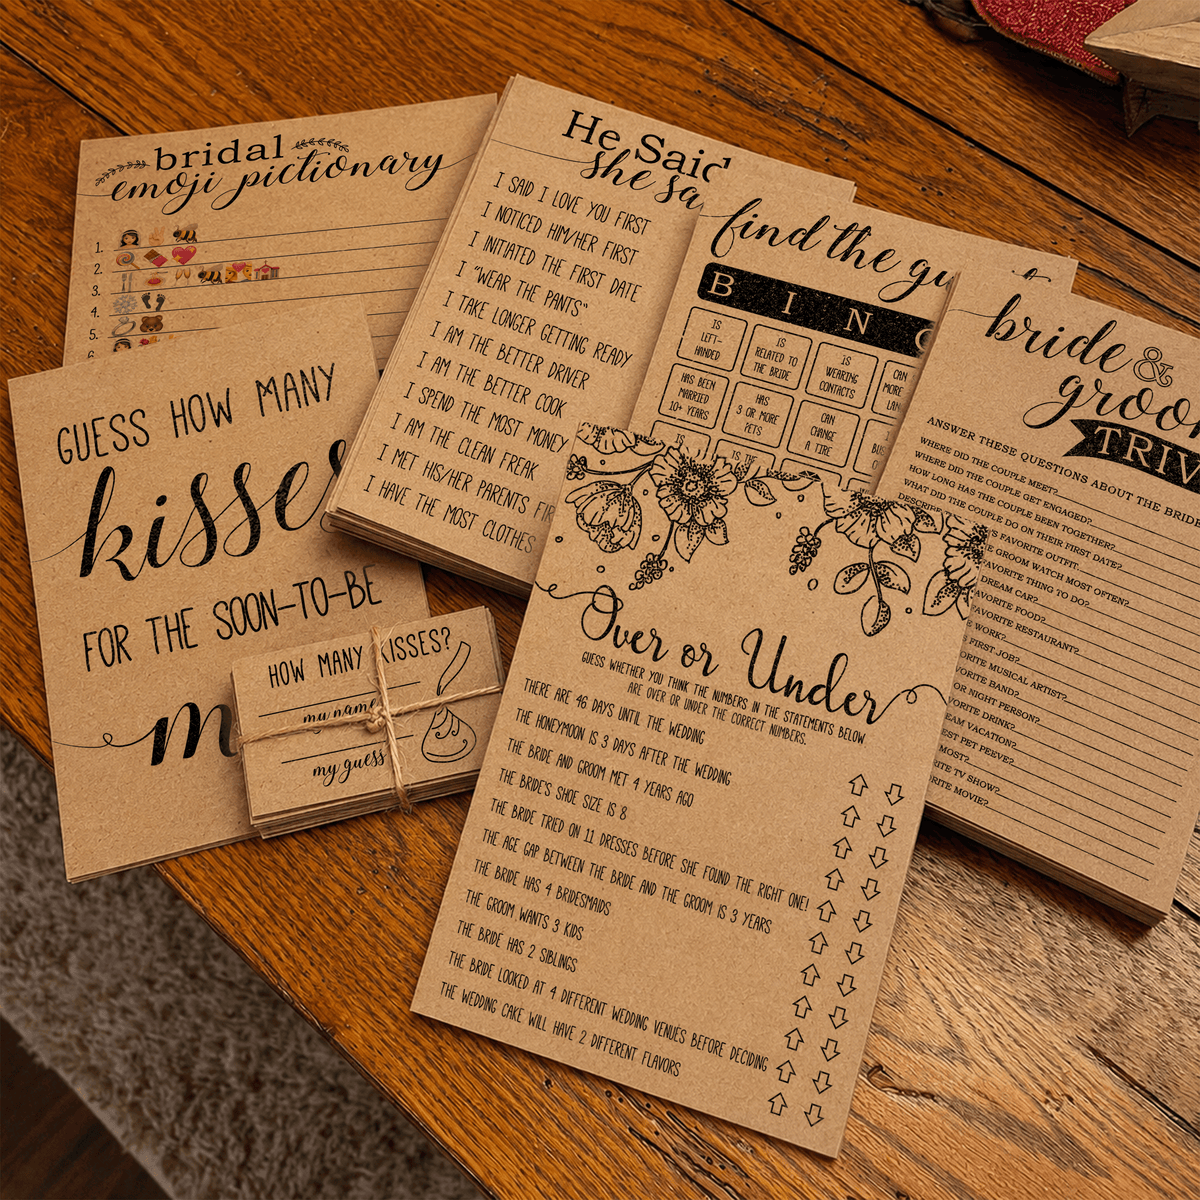 bridal
emoji pictionary
1.
2.
3.
4.
5.
6.
He Said
she sa
I SAID I LOVE YOU FIRST
I NOTICED HIM/HER FIRST
I INITIATED THE FIRST DATE
I "WEAR THE PANTS"
I TAKE LONGER GETTING READY
I AM THE BETTER DRIVER
I AM THE BETTER COOK
I SPEND THE MOST MONEY
I AM THE CLEAN FREAK
I MET HIS/HER PARENTS FIR
I HAVE THE MOST CLOTHES
find the gu
B I N G
IS LEFT-HANDED
IS RELATED TO THE BRIDE
IS WEARING CONTACTS
CAN MORE LAN
HAS BEEN MARRIED 10+ YEARS
HAS 3 OR MORE PETS
CAN CHANGE A TIRE
IS
IS THE
bride &
groo
TRIV
ANSWER THESE QUESTIONS ABOUT THE BRIDE
WHERE DID THE COUPLE MEET?
WHERE DID THE COUPLE GET ENGAGED?
HOW LONG HAS THE COUPLE BEEN TOGETHER?
WHAT DID THE COUPLE DO ON THEIR FIRST DATE?
DESCRIBE 'S FAVORITE OUTFIT
E GROOM WATCH MOST OFTEN?
FAVORITE THING TO DO?
DREAM CAR?
FAVORITE FOOD?
FAVORITE RESTAURANT?
E WORK?
FIRST JOB?
ORITE MUSICAL ARTIST?
ORITE BAND?
OR NIGHT PERSON?
ORITE DRINK?
EAM VACATION?
EST PET PEEVE?
MOST?
RITE TV SHOW?
RITE MOVIE?
GUESS HOW MANY
kisses
FOR THE SOON-TO-BE
m
HOW MANY KISSES?
my name
my guess
Over or Under
GUESS WHETHER YOU THINK THE NUMBERS IN THE STATEMENTS BELOW
ARE OVER OR UNDER THE CORRECT NUMBERS.
THERE ARE 46 DAYS UNTIL THE WEDDING
THE HONEYMOON IS 3 DAYS AFTER THE WEDDING
THE BRIDE AND GROOM MET 4 YEARS AGO
THE BRIDE'S SHOE SIZE IS 8
THE BRIDE TRIED ON 11 DRESSES BEFORE SHE FOUND THE RIGHT ONE!
THE AGE GAP BETWEEN THE BRIDE AND THE GROOM IS 3 YEARS
THE BRIDE HAS 4 BRIDESMAIDS
THE GROOM WANTS 3 KIDS
THE BRIDE HAS 2 SIBLINGS
THE BRIDE LOOKED AT 4 DIFFERENT WEDDING VENUES BEFORE DECIDING
THE WEDDING CAKE WILL HAVE 2 DIFFERENT FLAVORS